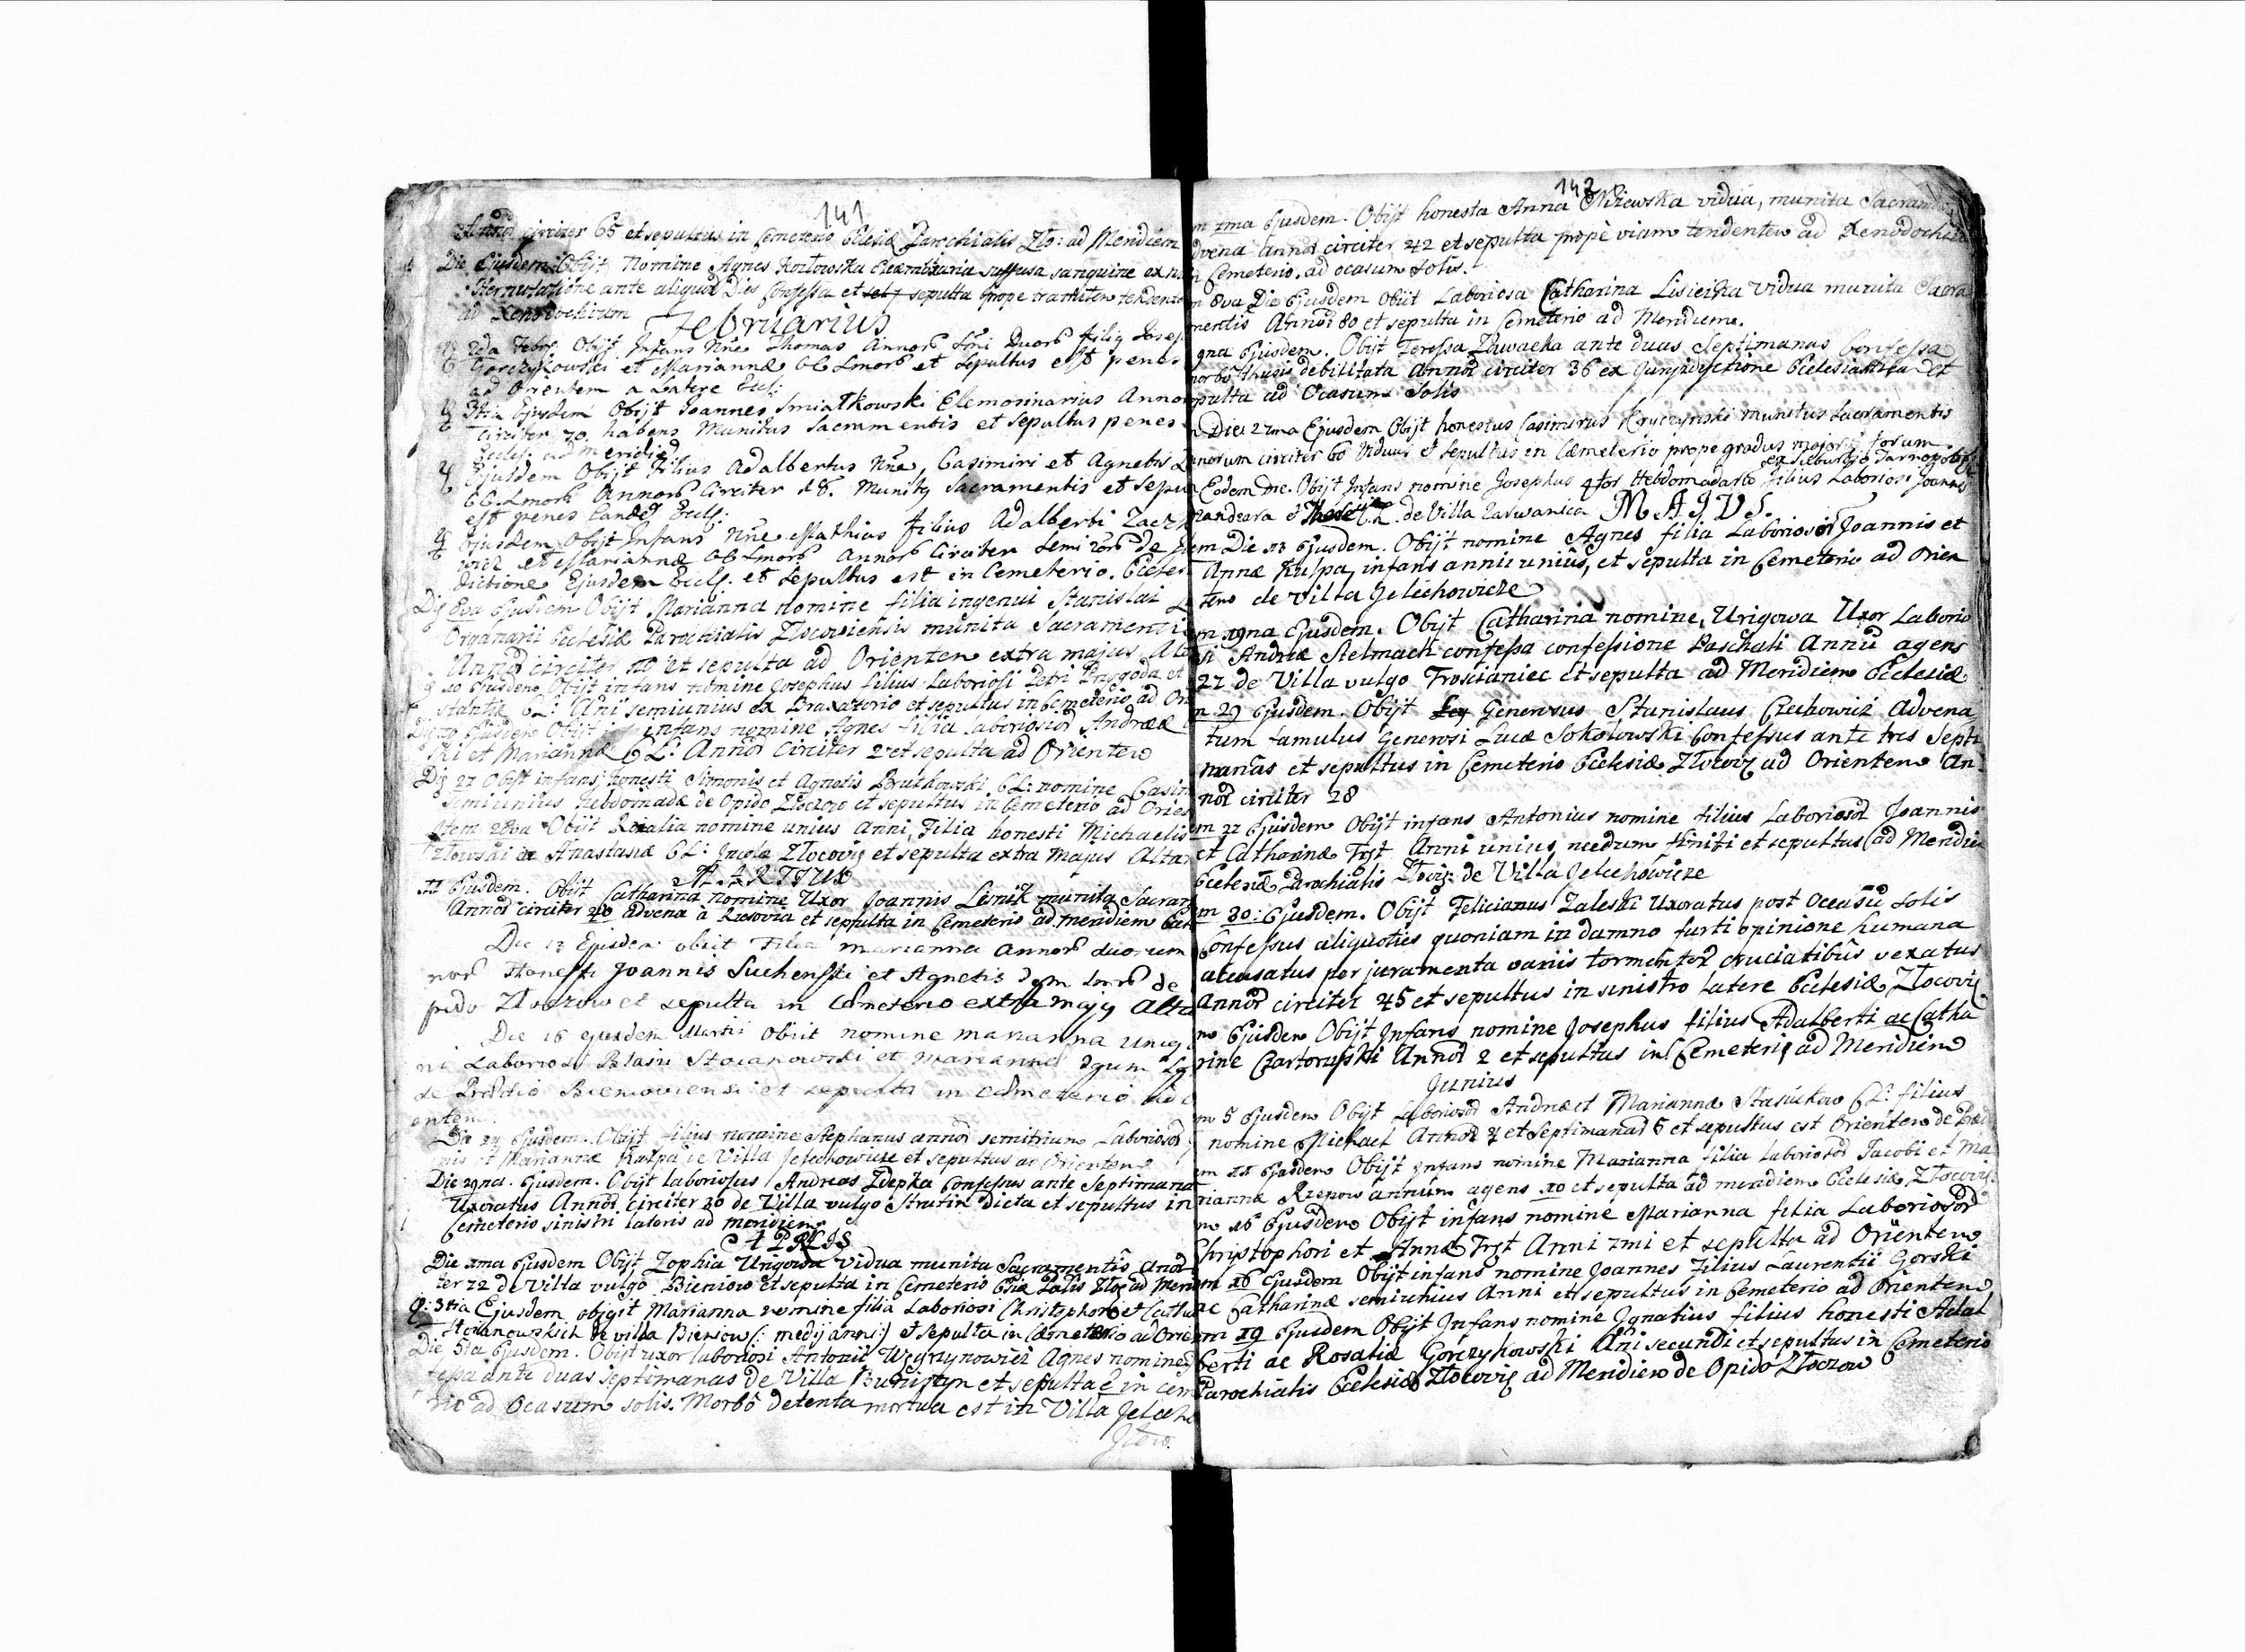 141
circiter 65 et sepultus in Cemeterio Eclesiæ Parochialis Zło: ad Meridiem
Die Ejusdem Obijt Nomine Agnes Kozłowska suffusa sanguine ex
Sternutatione ante aliquod Dies Confessa et sepulta prope tramitem
ad Xenodochium
Februarius
2da Febr. Obijt Infans Nne Thomas Annor Duor filig Josep
Gorczykowski et Mariannæ CC Lmor et Sepultus est penes
ad Orientem a Latere Eccl:
3tia Ejusdem Obijt Joannes Smiatkowski Elemosinarius Anno
Circiter 70 habens Munitus Sacramentis et sepultus penes
Eccls. ad meridiē
Ejusdem Obijt Filius Adalbertus Nne, Casimiri et Agnetis
CC Lmor Annor Circiter 18. Munitq Sacramentis et Sepu
est penes Eccls:
Ejusdem Obijt Infans Nne Mathias filius Adalberti
wicz et Mariannæ CC Lmor Annor Circiter Semi
dictione Ejusdem Eccls. et Sepultus est in Cemeterio. Eccles
Die 8va Ejusdem Obijt Marianna nomine filia ingenui Stanislai
Organarii Ecclesiæ Parochialis Złocoviensis munita Sacramenti
Annor circiter et sepulta ad Orientem extra majus Al
20 Ejusdem Obijt infans nomine Josephus filius Laboriosi Petri Przygoda et
stantiæ CL: Ani semiunius ex Braxatorio et sepultus in Cemeterio ad Ori
Ejusdem Obijt infans nomine Agnes filia laboriosor Andreæ
ski et Mariannæ CL: Annor Circiter 2 et sepulta ad Orientem
Die 22 Obijt infans honesti Simonis et Agnetis Brutkowski CL: nomine Casim
semiunius hebdomadæ de Opido Złoczow et sepultus in Cemeterio ad Orien
Item 28va Obijt Rozalia nomine unius Anni, Filia honesti Michaelis
et Anastasiæ CL: Incolæ Złocovię et sepulta extra Majus Altar
MARTIUS
11 Ejusdem. Obijt Catharina nomine Uxor Joannis Lesnik munita Sacram
Annor circiter 40 advena a Rzesovia et sepulta in Cemeterio ad meridiem
Die 13 Ejusdem obiit Filia marianna annor duorum
nor Honesti Joannis Suchenski et Agnetis de
pido Złoczow et sepulta in Cemeterio extra majq Alta
Die 16 ejusdem Martii Obiit nomine marianna
ni Laboriosi Blasii Stoianowski et mariannæ
de Prædio Bieniowiensi et sepulta in Cemeterio ad
entem.
Die 24 Ejusdem. Obijt filius nomine Stephanus annor semitrium Laboriosor
nis et Mariannæ Kulpa de Villa Jelechowicze et sepultus ad Orientem
Die 29na. Ejusdem. Obijt laboriosus Andreas Zdepka Confessus ante Septimana
Uxoratus Annor circiter 30 de Villa vulgo Strutin Dicta et sepultus in
Cemeterio sinistri lateris ad meridiem
APRILIS
Die 1ma Ejusdem Obijt Zophia Urigowa Vidua munita Sacramentis Anor
ter 72 de Villa vulgo Bieniow et sepulta in Cemeterio
3tia Ejusdem objgit Marianna nomine filia Laboriosi Christophori et Catha
Stoianowskich de villa Bieniow (: medij anni:) et sepulta in Cæmeterio ad Orien
Die 5ta Ejusdem. Obijt uxor laboriosi Antonii Agnes nomine
fessa ante duas septimanas de Villa et sepulta e in cem
rio ad Ocasum solis. Morbô detenta mortua est in Villa Jelecho
Item
142
7ma Ejusdem. Obijt honesta Anna Niżewska vidua, munita Sacram
dvena Annor circiter 42 et sepulta propè viam tendentem ad Xenodochiu
Cemeterio. ad ocasum solis.
8va Die Ejusdem Obiit Laboriosa Catharina Lisiecka Vidua munita Sacra
mentis Annor 80 et sepulta in Cemeterio ad Meridiem.
9na Ejusdem. Obijt Teressa Zawacka ante duas Septimanas Confessa
morbô debilitata Annor circiter 36 ex Jurisdictione Eclesiastica et
pulta ad Ocasum Solis
Die 27ma Ejusdem Obijt honestus Casimirus Kryczynski munitus Sacramentis
nnorum circiter 60 Viduus et Sepultus in Cæmeterio prope gradus majoris forum.
ex suburbio Tarnopolski
Eodem Die. Obijt Infans nomine Josephus 4tor Hebdomadarū filius Laboriosi Joannis
C.L. de Villa Zarwanica MAJUS.
em Die 13 Ejusdem. Obijt nomine Agnes filia Laboriosor Joannis et
Annæ Kulpa, infans anni unius, et sepulta in Cemeterio ad Orien
tem de Villa Jelechowicze
m 19na Ejusdem. Obijt Catharina nomine, Urigowa Uxor Laborio
si Andreæ Stelmach confessa confessione Paschali Annū agens
22 de Villa vulgo Trościaniec et sepulta ad Meridiem Ecclesiæ
m 29 Ejusdem. Obijt Generosus Stanislaus Czechowicz Advena
tum famulus Generosi Lucæ Sokołowski Confessus ante tres Septi
manas et sepultus in Cemeterio Eclesiæ Złocovię ad Orientem An
nor circiter 28
m 22 Ejusdem Obijt infans Antonius nomine filius Laboriosor Joannis
et Catharinæ Fryt Anni unius needum finiti et sepultus ad Meridie
Eclesiæ Parochialis Złovię: de Villa Jelechowicze
m 30: Ejusdem. Obijt Felicianus Zaleski Uxoratus post Ocasū Solis
Confessus aliquoties quoniam in damno furti opinione humana
acusatus per juramenta variis tormentor cruciatibus vexatus
Annor circiter 45 et sepultus in sinistro latere Eclesiæ Złocovię
m Ejusdem Obijt Infans nomine Josephus filius Adalberti ac Catha
rinæ Czartoryski Annor 2 et sepultus in Cemeterię ad Meridiem
Junius
m 5 Ejusdem Obijt Laboriosor Andreæ et Mariannæ Stasiukow CL: filius
nomine Michael Annor 7 et Septimanar 6 et sepultus est Orientem de
m Ejusdem Obijt Infans nomine Marianna filia laboriosor Jacobi et Ma
riannæ Rzepow annum agens 10 et sepulta ad meridiem Eclesiæ Złocovię
m 16 Ejusdem Obijt infans nomine Marianna filia Laboriosor
Christophori et Annæ Fryt Anni 7mi et sepulta ad Orientem
m 16 Ejusdem Obijt infans nomine Joannes Filius Laurentii Gorski
ac Catharinæ semiunius Anni et sepultus in Cemeterio ad Orientem
m 19 Ejusdem Obijt Infans nomine Ignatius filius honesti Adal
berti ac Rosaliæ Gorczykowski Ani secundi et sepultus in Cemeterio
Parochialis Eclesiæ Złocovię ad Meridiem de Opido Złoczow